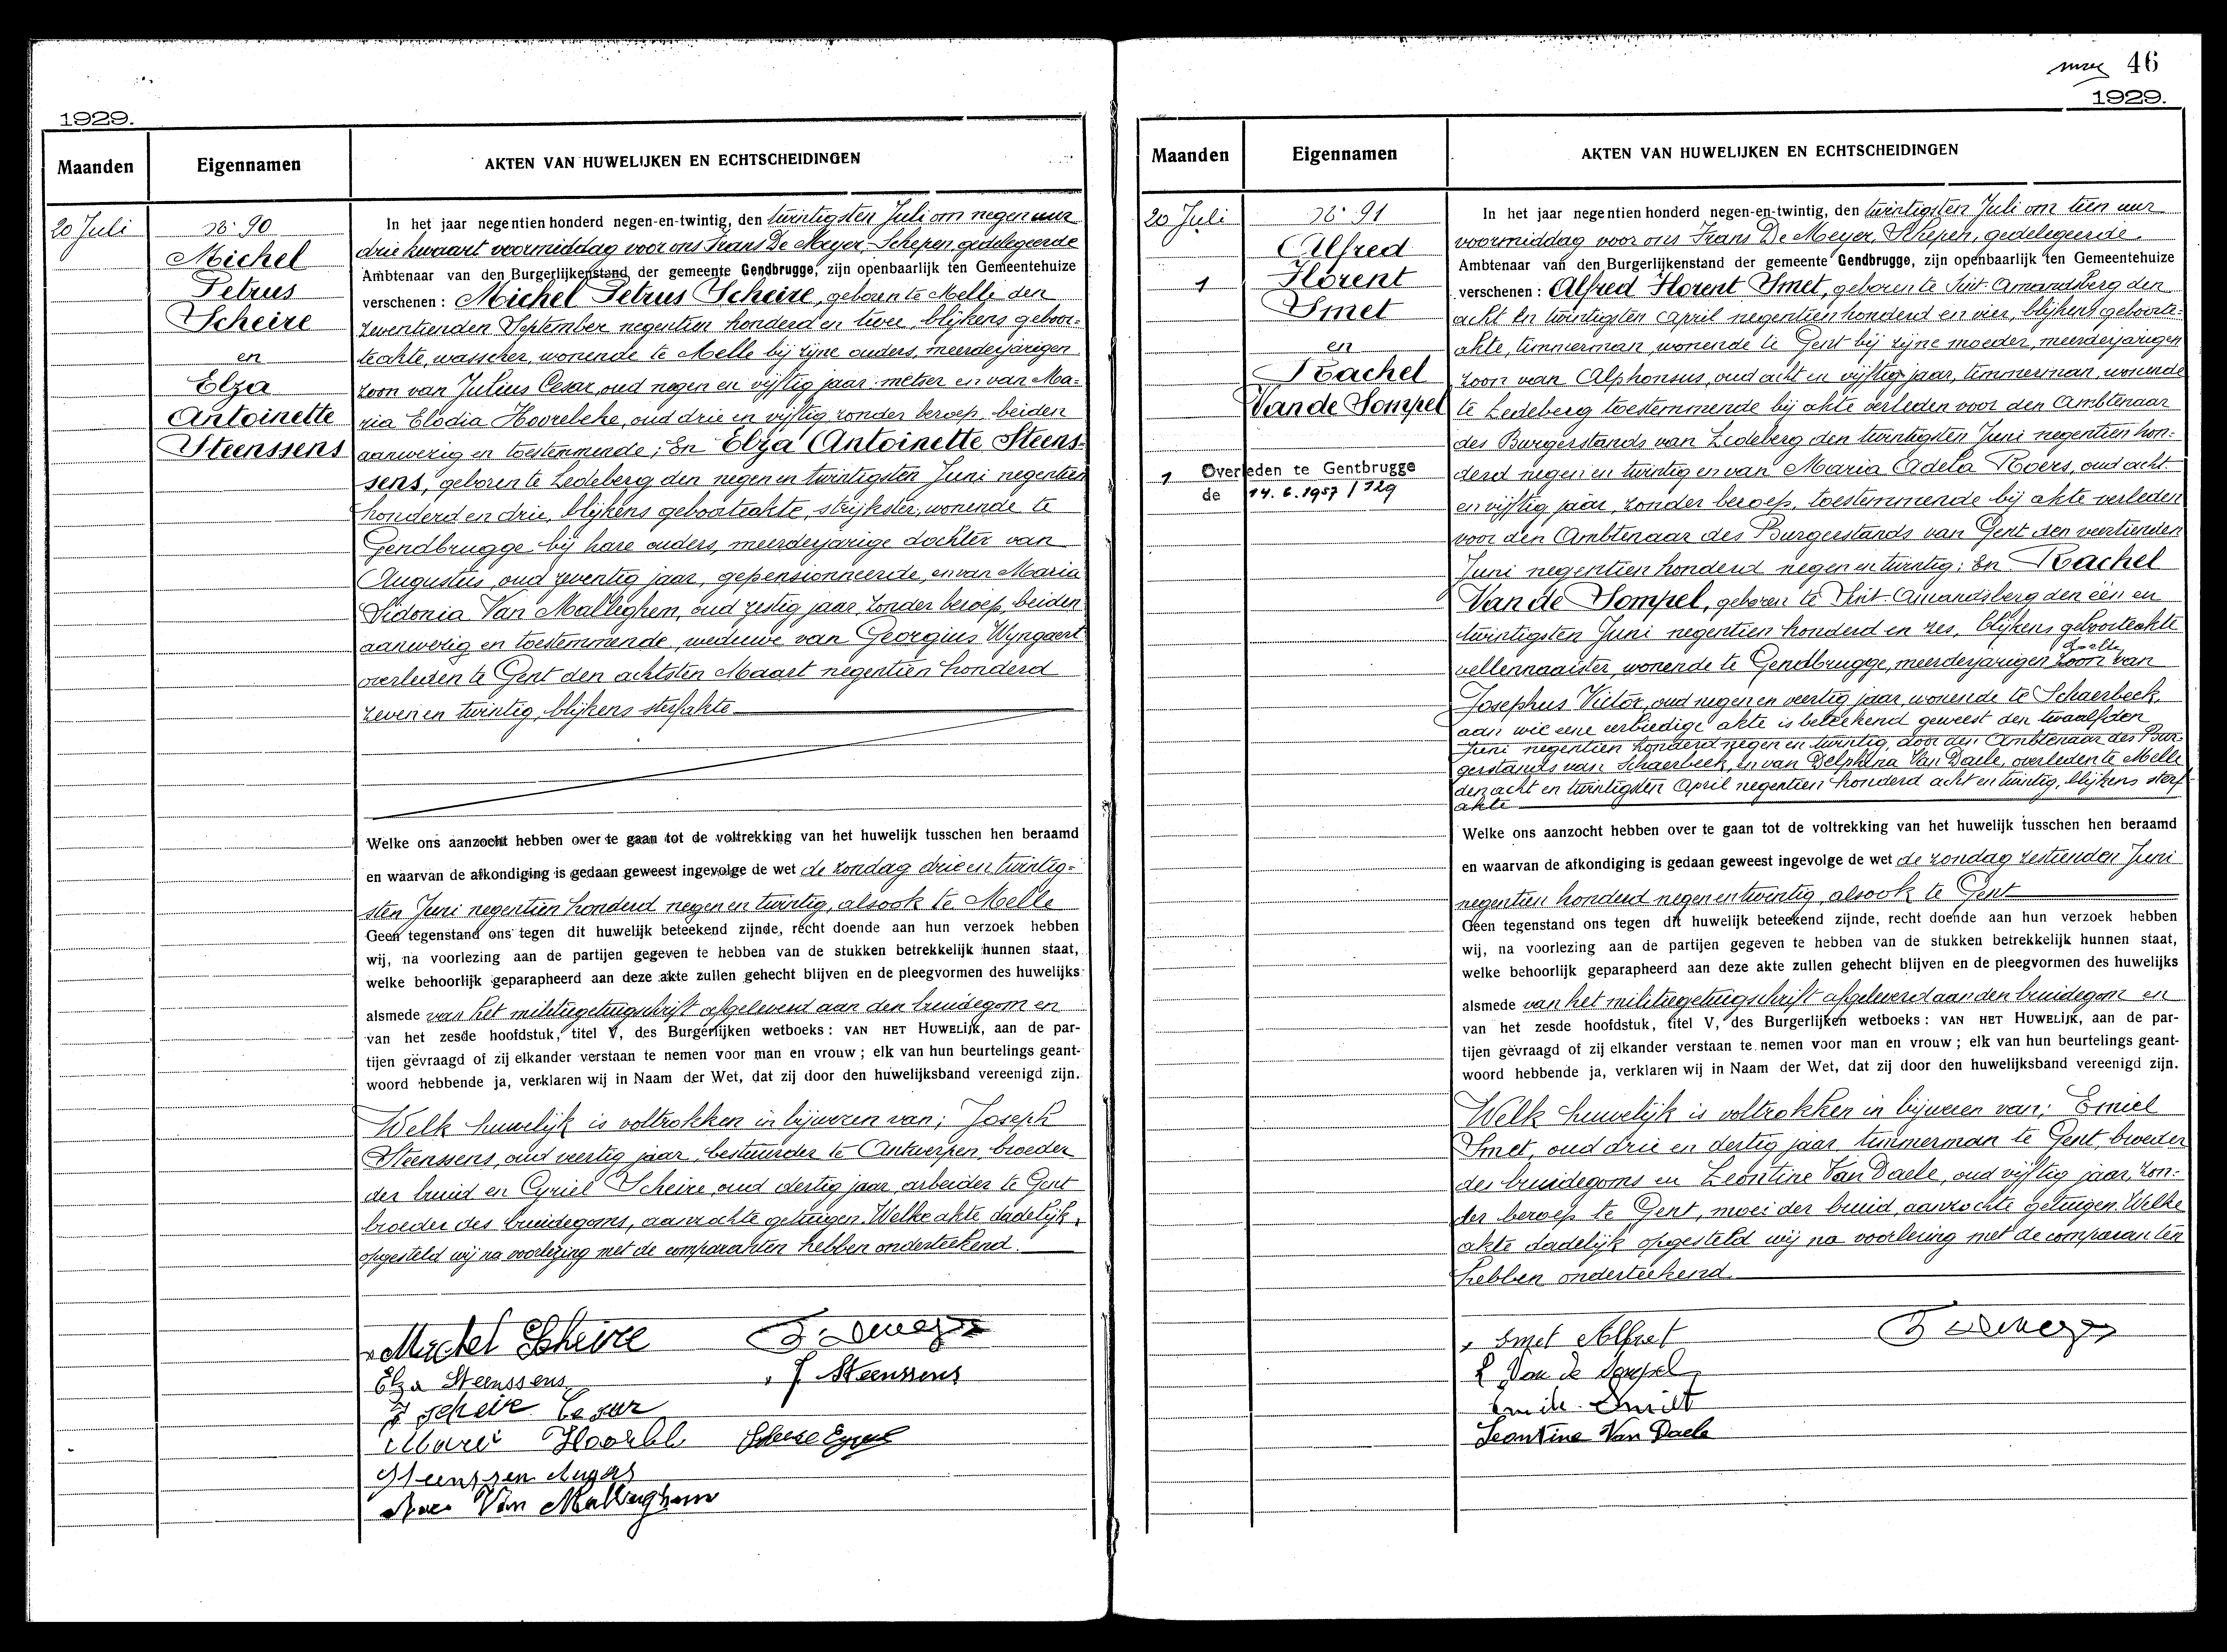 1929.
Maanden
Eigennamen
AKTEN VAN HUWELIJKEN EN ECHTSCHEIDINGEN
20 Juli
N° 90
Michel
Petrus
Scheire
en
Elza
Antoinette
Steenssens
In het jaar negentien honderd negen-en-twintig, den twintigsten Juli om negen uur
drie kwaart voormiddag voor ons Frans De Meyer, Schepen, gedelegeerde
Ambtenaar van den Burgerlijkenstand der gemeente Gendbrugge, zijn openbaarlijk ten Gemeentehuize
verschenen : Michel Petrus Scheire, geboren te Melle den
zeventienden September negentien honderd en twee, blijkens geboor-
teakte, wasscher, wonende te Melle bij zijne ouders, meerderjarigen
zoon van Julius Cesar, oud negen en vijftig jaar metser en van Ma-
ria Elodia Hoorebeke, oud drie en vijftig zonder beroep, beiden
aanwezig en toestemmende; En Elza Antoinette Steens-
sens, geboren te Ledeberg den negen en twintigsten Juni negentien
honderd en drie, blijkens geboorteakte, strijkster, wonende te
Gendbrugge bij hare ouders, meerderjarige dochter van
Augustus, oud zeventig jaar, gepensionneerde, en van Maria
Sidonia Van Malleghem, oud zestig jaar, zonder beroep, beiden
aanwezig en toestemmende, weduwe van Georgius Wyngaert
overleden te Gent den achtsten Maart negentien honderd
zeven en twintig, blijkens sterfakte
Welke ons aanzocht hebben over te gaan tot de voltrekking van het huwelijk tusschen hen beraamd
en waarvan de afkondiging is gedaan geweest ingevolge de wet de zondag drie en twintig-
sten Juni negentien honderd negen en twintig, alsook te Melle
Geen tegenstand ons tegen dit huwelijk beteekend zijnde, recht doende aan hun verzoek hebben
wij, na voorlezing aan de partijen gegeven te hebben van de stukken betrekkelijk hunnen staat,
welke behoorlijk geparapheerd aan deze akte zullen gehecht blijven en de pleegvormen des huwelijks
alsmede van het militiegetuigschrift afgeleverd aan den bruidegom en
van het zesde hoofdstuk, titel V, des Burgerlijken wetboeks : VAN HET HUWELIJK, aan de par-
tijen gevraagd of zij elkander verstaan te nemen voor man en vrouw ; elk van hun beurtelings geant-
woord hebbende ja, verklaren wij in Naam der Wet, dat zij door den huwelijksband vereenigd zijn.
Welk huwelijk is voltrokken in bijwezen van; Joseph
Steenssens, oud veertig jaar, bestuurder te Antwerpen, broeder
der bruid en Cyriel Scheire, oud dertig jaar, arbeider te Gent
broeder des bruidegoms, aanzochte getuigen. Welke akte dadelijk
opgesteld wij na voorlezing met de comparanten hebben onderteekend.
Michel Scheire
Elza Steenssens
J. Steenssens
Scheire Cesar
Marie
Steenssen
Van Malleghem
46
1929.
Maanden
Eigennamen
AKTEN VAN HUWELIJKEN EN ECHTSCHEIDINGEN
20 Juli
1
N° 91
Alfred
Florent
Smet
en
Rachel
Van de Sompel
1 Overleden te Gentbrugge
de 14.6.1957 / 129
In het jaar negentien honderd negen-en-twintig, den twintigsten Juli om tien uur
voormiddag voor ons Frans De Meyer, Schepen, gedelegeerde
Ambtenaar van den Burgerlijkenstand der gemeente Gendbrugge, zijn openbaarlijk ten Gemeentehuize
verschenen : Alfred Florent Smet, geboren te Sint-Amandsberg den
acht en twintigsten April negentien honderd en vier, blijkens geboorte-
akte, timmerman, wonende te Gent bij zijne moeder, meerderjarigen
zoon van Alphonsus, oud acht en vijftig jaar, timmerman, wonende
te Ledeberg toestemmende bij akte verleden voor den Ambtenaar
des Burgerstands van Ledeberg den twintigsten Juni negentien hon-
derd negen en twintig en van Maria Adela Roers, oud acht
en vijftig jaar, zonder beroep, toestemmende bij akte verleden
voor den Ambtenaar des Burgerstands van Gent den veertienden
Juni negentien honderd negen en twintig; En Rachel
Van de Sompel, geboren te Sint-Amandsberg den een en
twintigsten Juni negentien honderd en zes, blijkens geboorteakte
vellennaaister, wonende te Gendbrugge, meerderjarigen zoon van
Josephus Victor, oud negen en veertig jaar, wonende te Schaerbeek,
aan wie eene eerbiedige akte is beteekend geweest den twaalfden
Juni negentien honderd negen en twintig, door den Ambtenaar des Bur-
gerstands van Schaerbeek, en van Delphina Van Daele, overleden te Melle
den acht en twintigsten April negentien honderd acht en twintig, blijkens sterf-
akte
Welke ons aanzocht hebben over te gaan tot de voltrekking van het huwelijk tusschen hen beraamd
en waarvan de afkondiging is gedaan geweest ingevolge de wet de zondag zestienden Juni
negentien honderd negen en twintig alsook te Gent
Geen tegenstand ons tegen dit huwelijk beteekend zijnde, recht doende aan hun verzoek hebben
wij, na voorlezing aan de partijen gegeven te hebben van de stukken betrekkelijk hunnen staat,
welke behoorlijk geparapheerd aan deze akte zullen gehecht blijven en de pleegvormen des huwelijks
alsmede van het militiegetuigschrift afgeleverd aan den bruidegom en
van het zesde hoofdstuk, titel V, des Burgerlijken wetboeks : VAN HET HUWELIJK, aan de par-
tijen gevraagd of zij elkander verstaan te nemen voor man en vrouw ; elk van hun beurtelings geant-
woord hebbende ja, verklaren wij in Naam der Wet, dat zij door den huwelijksband vereenigd zijn.
Welk huwelijk is voltrokken in bijwezen van; Emiel
Smet, oud drie en dertig jaar timmerman te Gent, broeder
des bruidegoms en Leontine Van Daele, oud vijftig jaar, zon-
der beroep te Gent, moei der bruid, aanzochte getuigen. Welke
akte dadelijk opgesteld wij na voorlezing met de comparanten
hebben onderteekend.
Smet Alfret
R Van de Sompel
Leontine Van Daele